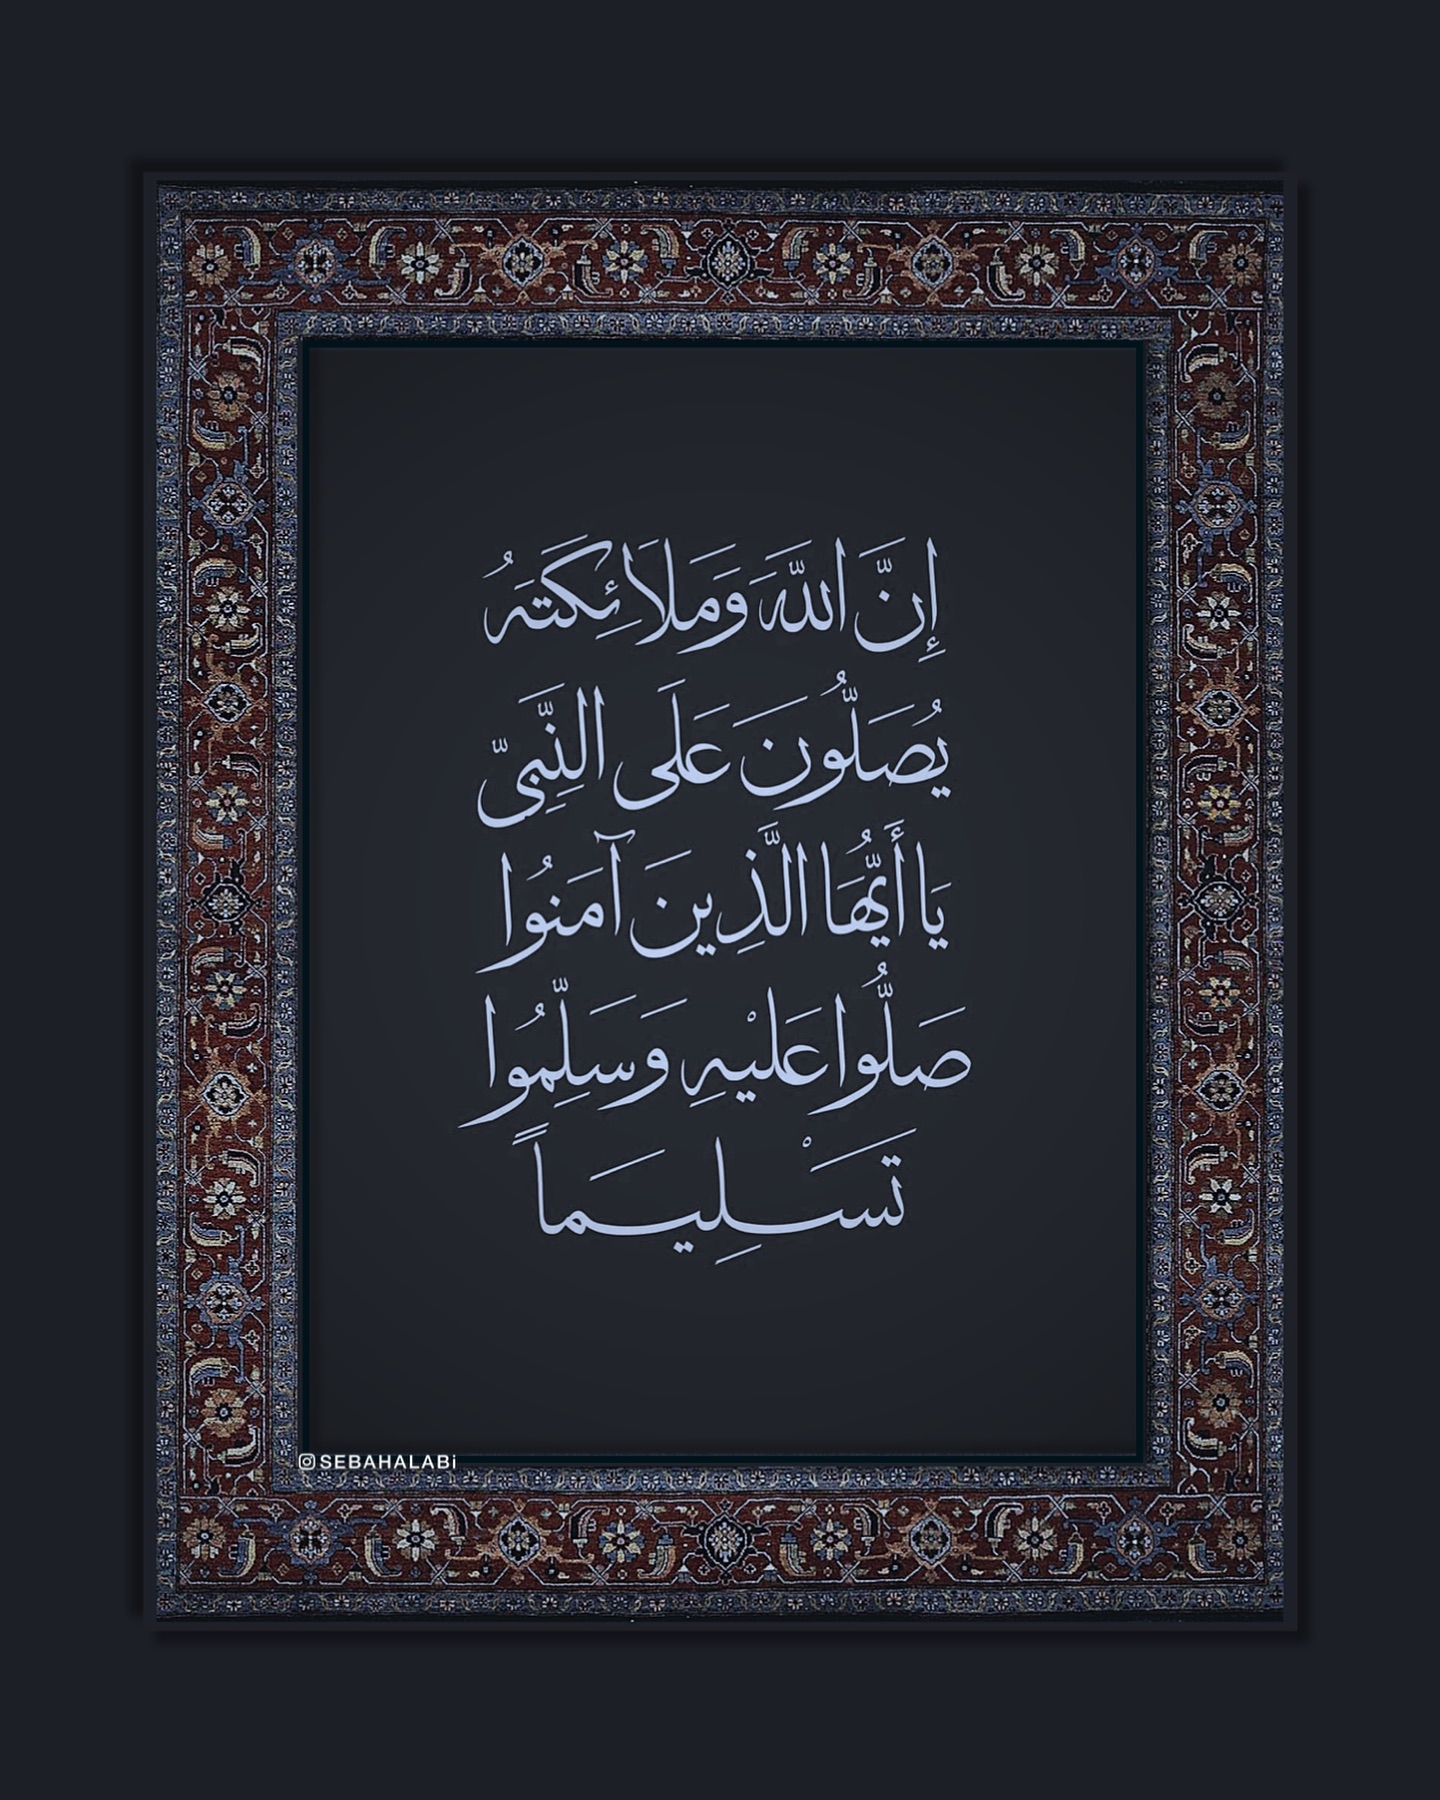 إِنَّ اللَّهَ وَمَلَائِكَتَهُ
يُصَلُّونَ عَلَى النَّبِيّ
يَا أَيُّهَا الَّذِينَ آمَنُوا
صَلُّوا عَلَيْهِ وَسَلِّمُوا
تَسْلِيمًا
SEBAHALABi